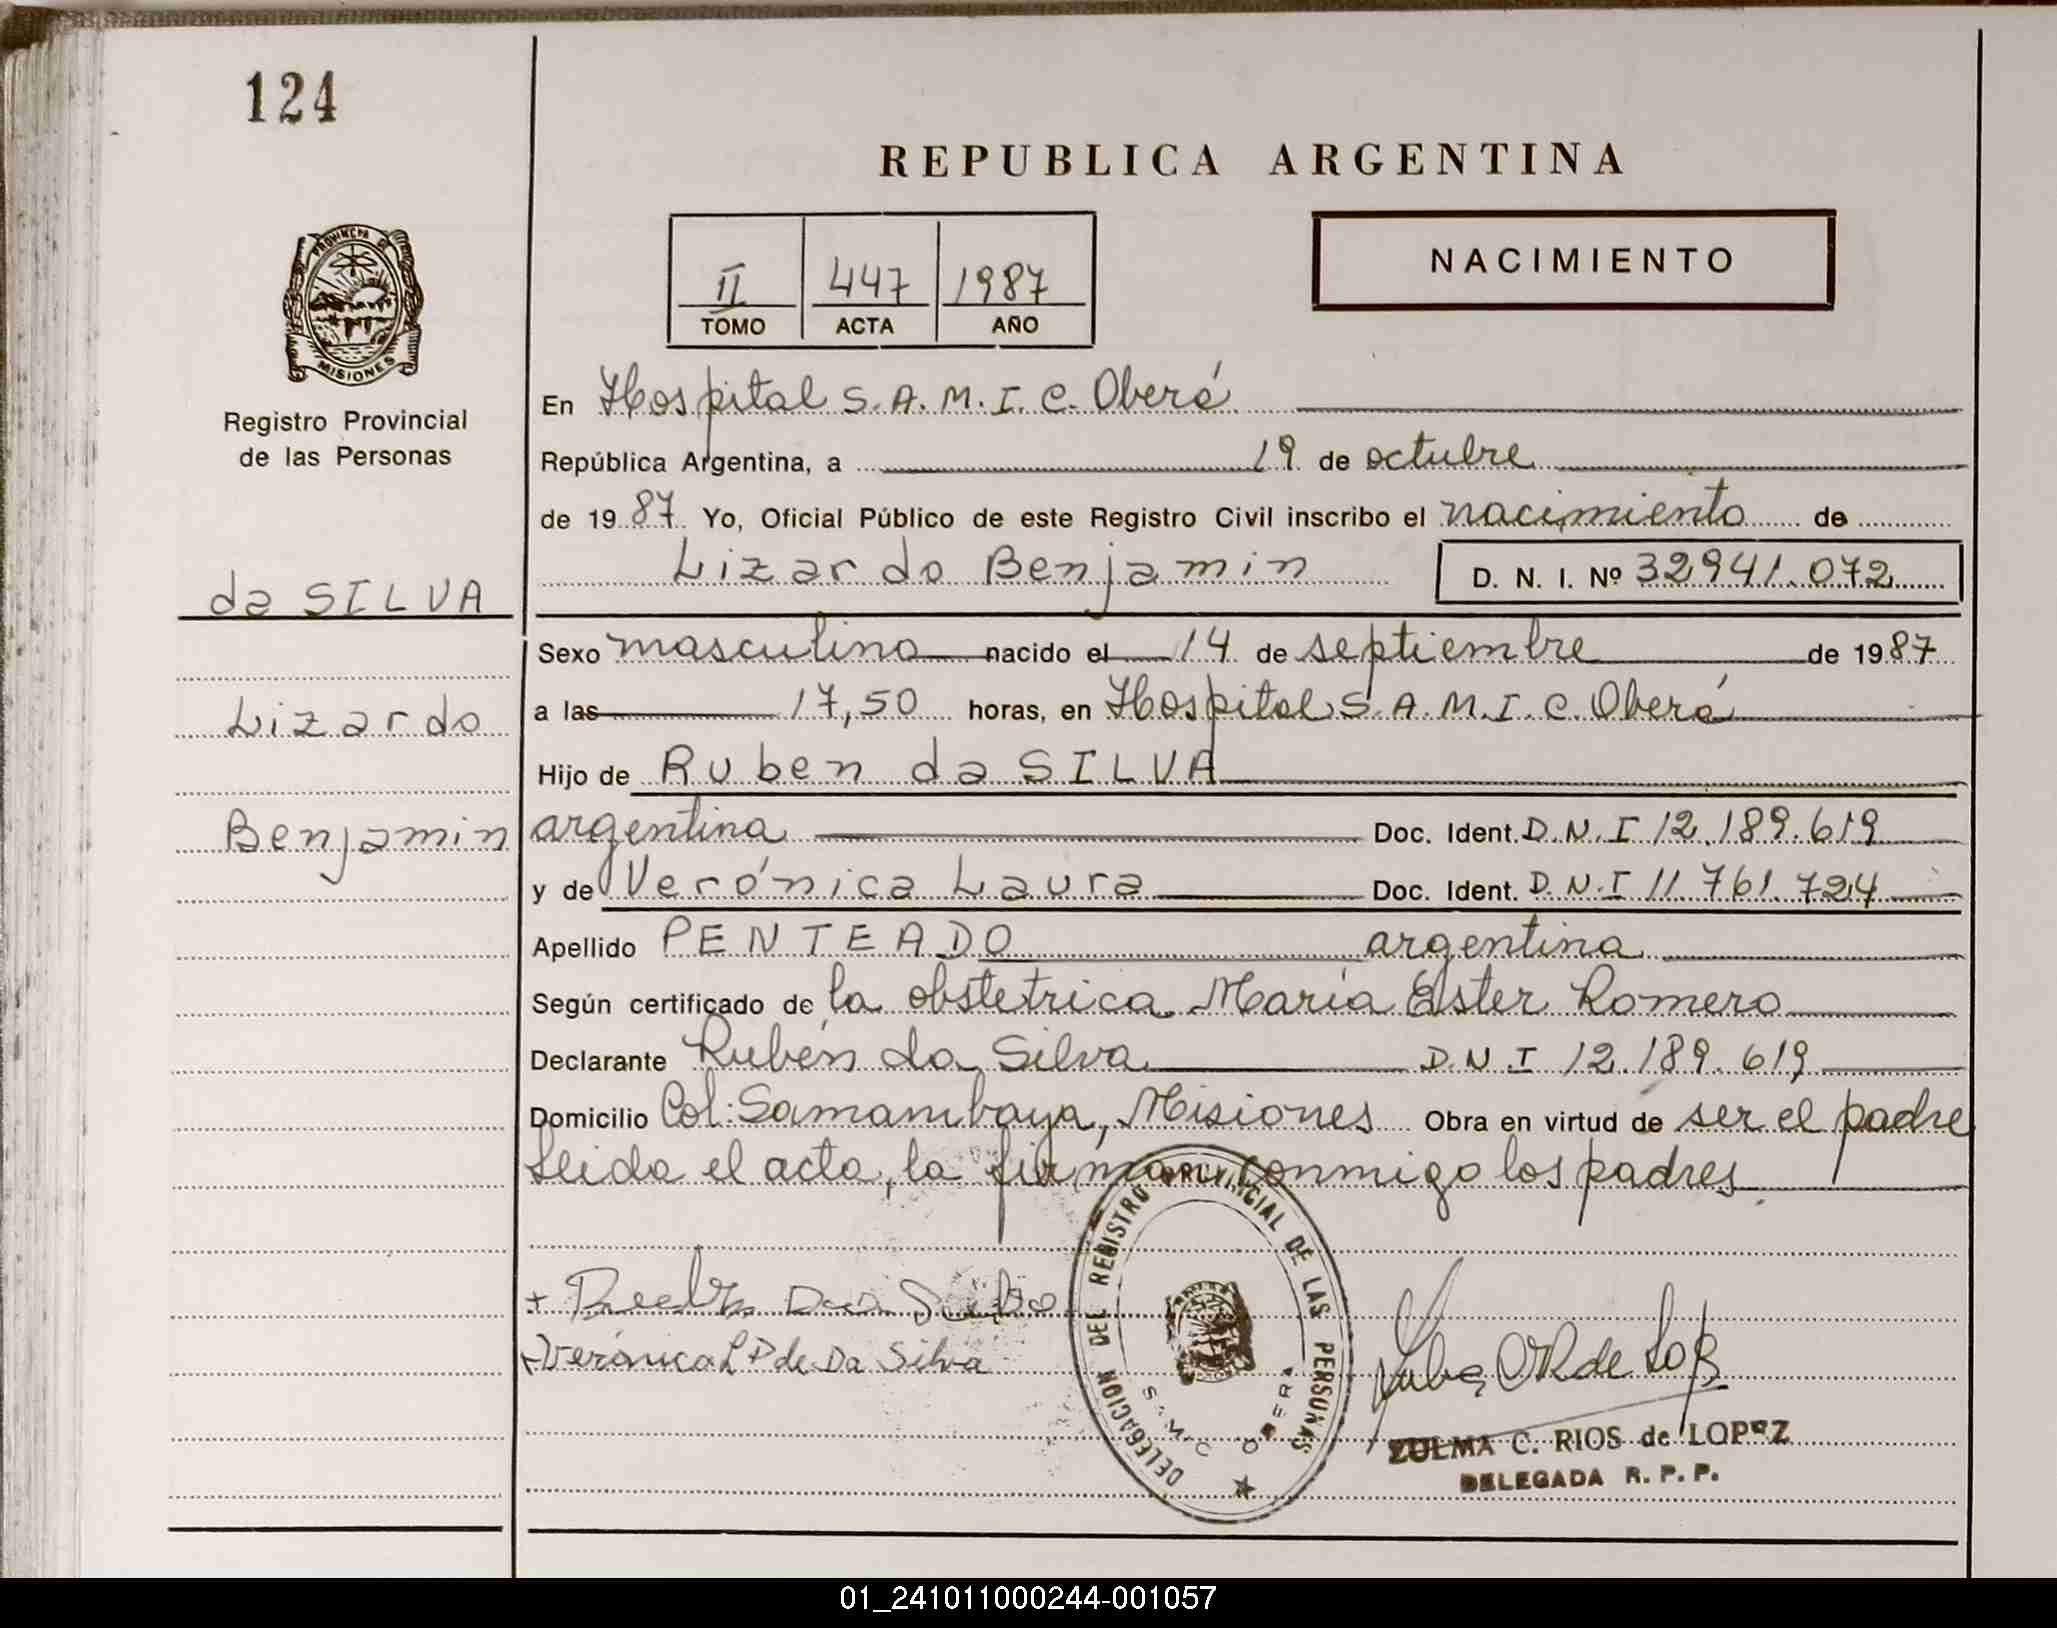 124
REPUBLICA ARGENTINA
PROVINCIA DE
MISIONES
Registro Provincial
de las Personas
II 447 1987
TOMO ACTA AÑO
NACIMIENTO
En Hospital S.A.M.I.C. Oberá
República Argentina, a 19 de octubre
de 1987 Yo, Oficial Público de este Registro Civil inscribo el nacimiento de
Lizardo Benjamin D. N. I. Nº 32941.072
da SILVA
Lizardo
Benjamin
Sexo masculino nacido el 14 de septiembre de 1987
a las 17,50 horas, en Hospital S.A.M.I.C. Oberá
Hijo de Ruben da SILVA
argentina Doc. Ident. D.N.I 12.189.619
y de Verónica Laura Doc. Ident. D.N.I 11.761.724
Apellido PENTEADO argentina
Según certificado de la obstetrica María Ester Romero
Declarante Rubén da Silva D.N.I 12.189.619
Domicilio Col: Samambaya, Misiones Obra en virtud de ser el padre
Leida el acta, la firman conmigo los padres
+ Da Silva
+ Verónica L P de Da Silva
DELEGACION DEL REGISTRO PROVINCIAL DE LAS PERSONAS
SAMIC OBERA
de Lopez
ZULMA C. RIOS de LOPEZ
DELEGADA R. P. P.
01_241011000244-001057